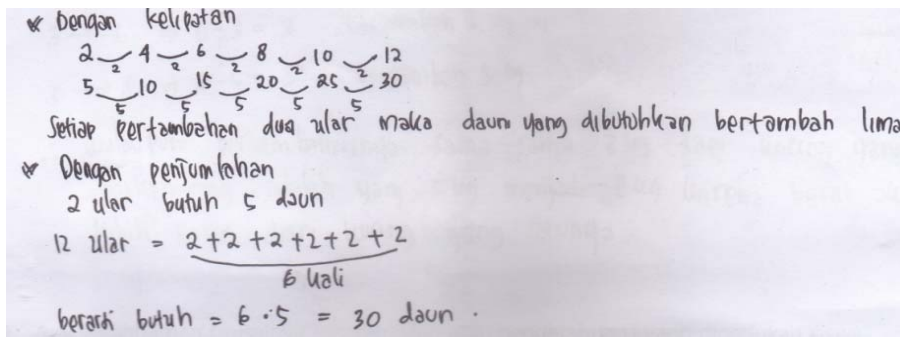 * Dengan kelipatan
2 4 6 8 10 12
2 2 2 2 2
5 10 15 20 25 30
5 5 5 5 5
Setiap pertambahan dua ular maka daun yang dibutuhkan bertambah lima
* Dengan penjumlahan
2 ular butuh 5 daun
12 ular = 2+2+2+2+2+2
6 kali
berarti butuh = 6 . 5 = 30 daun .